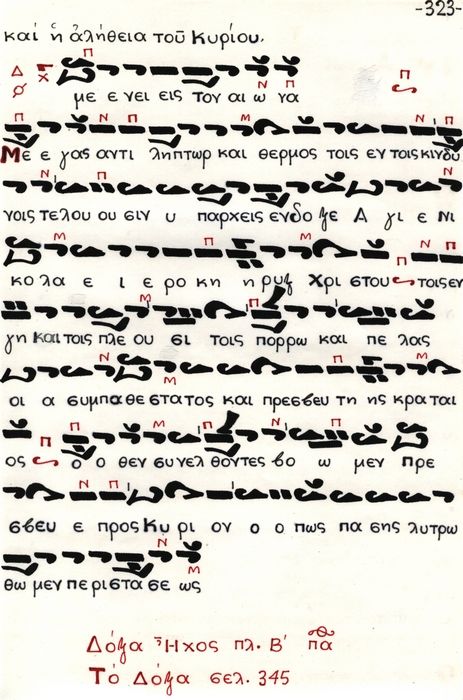 -323-
καί ἡ ἀλήθεια τοῦ Κυρίου.
Π
Δ Χ Ν Π Π
με ε νει εις τον αι ω να
Π Ν Π Μ Ν Π
Με ε γας αντι ληπτωρ και θερμος τοις εν τοις κινδυ
Ν Π Ν
νοις τελου ου σιν υ παρχεις ενδο ξε Α γι ε Νι
Μ Π Μ Π Ν Π
κο λα ε ι ε ρο κη η ρυξ Χρι στου τοις εν
Μ Π
γη και τοις πλε ου σι τοις πορρω και πε λας
Ν Μ Π Μ
οι α συμπα θε στα τος και πρεσβευ τη ης κρα ται
Π Π Μ Π Ν Π
ος ο ο θεν συνελ θοντες βο ω μεν πρε
Ν Π
σβευ ε προς Κυ ρι ον ο ο πως πα σης λυτρω
Ν Μ
θω μεν πε ρι στα σε ως
Δόξα Ἦχος πλ. Β' πα
Τό Δόξα σελ. 345